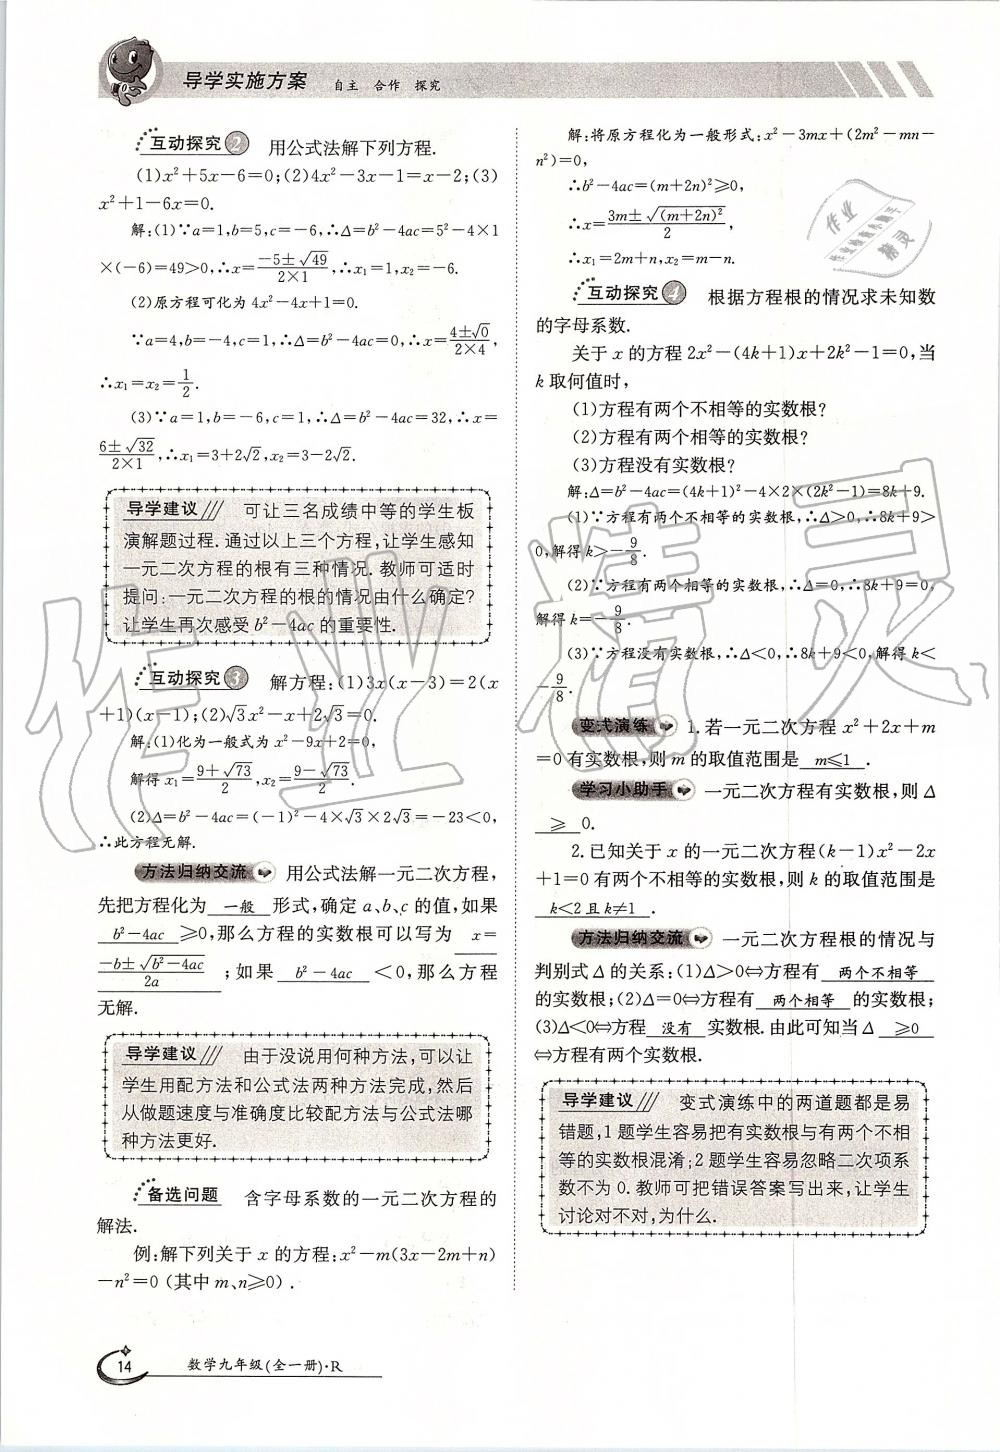 导学实施方案 自主 合作 探究
互动探究2 用公式法解下列方程.
(1)x²+5x-6=0;(2)4x²-3x-1=x-2;(3)
x²+1-6x=0.
解:(1)∵a=1,b=5,c=-6,∴Δ=b²-4ac=5²-4×1
×(-6)=49>0,∴x=(-5±√49)/(2×1),∴x₁=1,x₂=-6.
(2)原方程可化为 4x²-4x+1=0.
∵a=4,b=-4,c=1,∴Δ=b²-4ac=0,∴x=(4±√0)/(2×4),
∴x₁=x₂=1/2.
(3)∵a=1,b=-6,c=1,∴Δ=b²-4ac=32,∴x=
(6±√32)/(2×1),∴x₁=3+2√2,x₂=3-2√2.
导学建议/// 可让三名成绩中等的学生板
演解题过程.通过以上三个方程,让学生感知
一元二次方程的根有三种情况.教师可适时
提问:一元二次方程的根的情况由什么确定?
让学生再次感受 b²-4ac 的重要性.
互动探究3 解方程:(1)3x(x-3)=2(x
+1)(x-1);(2)√3x²-x+2√3=0.
解:(1)化为一般式为 x²-9x+2=0,
解得 x₁=(9+√73)/2,x₂=(9-√73)/2.
(2)Δ=b²-4ac=(-1)²-4×√3×2√3=-23<0,
∴此方程无解.
方法归纳交流 用公式法解一元二次方程,
先把方程化为 一般 形式,确定 a、b、c 的值,如果
b²-4ac ≥0,那么方程的实数根可以写为 x=
(-b±√(b²-4ac))/2a ;如果 b²-4ac <0,那么方程
无解.
导学建议/// 由于没说用何种方法,可以让
学生用配方法和公式法两种方法完成,然后
从做题速度与准确度比较配方法与公式法哪
种方法更好.
备选问题 含字母系数的一元二次方程的
解法.
例:解下列关于 x 的方程:x²-m(3x-2m+n)
-n²=0(其中 m、n≥0).
解:将原方程化为一般形式:x²-3mx+(2m²-mn-
n²)=0,
∴b²-4ac=(m+2n)²≥0,
∴x=(3m±√(m+2n)²)/2,
∴x₁=2m+n,x₂=m-n.
互动探究4 根据方程根的情况求未知数
的字母系数.
关于 x 的方程 2x²-(4k+1)x+2k²-1=0,当
k 取何值时,
(1)方程有两个不相等的实数根?
(2)方程有两个相等的实数根?
(3)方程没有实数根?
解:Δ=b²-4ac=(4k+1)²-4×2×(2k²-1)=8k+9.
(1)∵方程有两个不相等的实数根,∴Δ>0,∴8k+9>
0,解得 k>-9/8.
(2)∵方程有两个相等的实数根,∴Δ=0,∴8k+9=0,
解得 k=-9/8.
(3)∵方程没有实数根,∴Δ<0,∴8k+9<0,解得 k<
-9/8.
变式演练 1.若一元二次方程 x²+2x+m
=0 有实数根,则 m 的取值范围是 m≤1 .
学习小助手 一元二次方程有实数根,则 Δ
≥ 0.
2.已知关于 x 的一元二次方程(k-1)x²-2x
+1=0 有两个不相等的实数根,则 k 的取值范围是
k<2且k≠1 .
方法归纳交流 一元二次方程根的情况与
判别式 Δ 的关系:(1)Δ>0⇔方程有 两个不相等
的实数根;(2)Δ=0⇔方程有 两个相等 的实数根;
(3)Δ<0⇔方程 没有 实数根.由此可知当 Δ ≥0
⇔方程有两个实数根.
导学建议/// 变式演练中的两道题都是易
错题,1 题学生容易把有实数根与有两个不相
等的实数根混淆;2 题学生容易忽略二次项系
数不为 0.教师可把错误答案写出来,让学生
讨论对不对,为什么.
14 数学九年级(全一册)·R
作业精灵